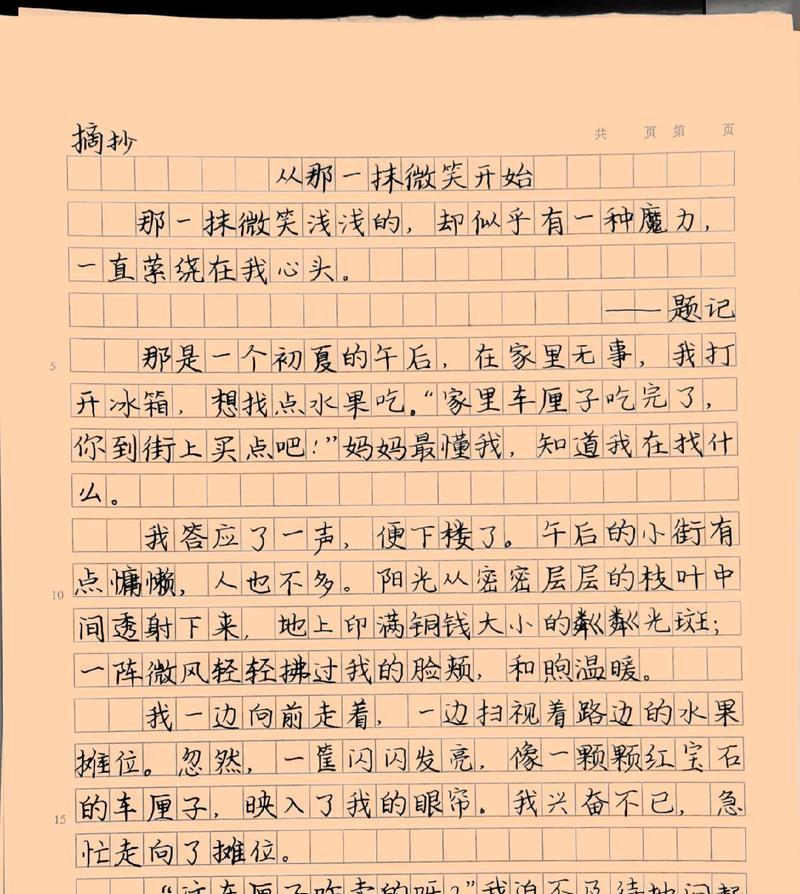 共 页 第 页
摘抄
从那一抹微笑开始
那一抹微笑浅浅的，却似乎有一种魔力，
一直萦绕在我心头。
——题记
5
那是一个初夏的午后，在家里无事，我打
开冰箱，想找点水果吃。“家里车厘子吃完了，
你到街上买点吧！”妈妈最懂我，知道我在找什
么。
我答应了一声，便下楼了。午后的小街有
点慵懒，人也不多。阳光从密密层层的枝叶中
10
间透射下来，地上印满铜钱大小的粼粼光斑；
一阵微风轻轻拂过我的脸颊，和煦温暖。
我一边向前走着，一边扫视着路边的水果
摊位。忽然，一筐闪闪发亮，像一颗颗红宝石
的车厘子，映入了我的眼帘。我兴奋不已，急
15
忙走向了摊位。
“这车厘子咋卖的呀？”我迫不及待地问